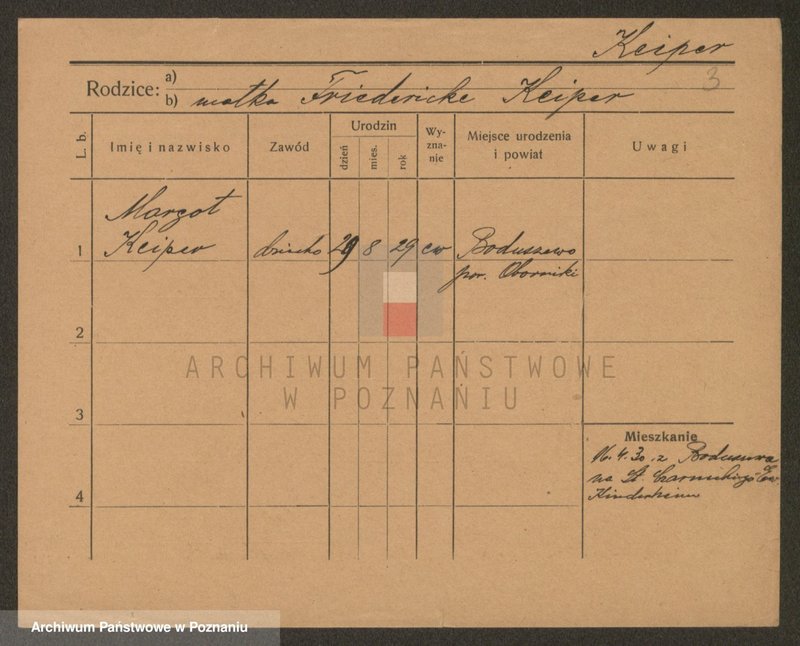 Keiper
3
Rodzice: a)
b) matka Friedericke Keiper
L. b.
Imię i nazwisko
Zawód
Urodzin
dzień
mies.
rok
Wy-
zna-
nie
Miejsce urodzenia
i powiat
Uwagi
Margot
1 Keiper dziecko 29 8 29 ew Boduszewo
pow. Oborniki
2
ARCHIWUM PAŃSTWOWE
W POZNANIU
3
Mieszkanie
16.4.30 z Boduszewa
na St. Czarnieckiego Ew
4 Kinderheim
Archiwum Państwowe w Poznaniu